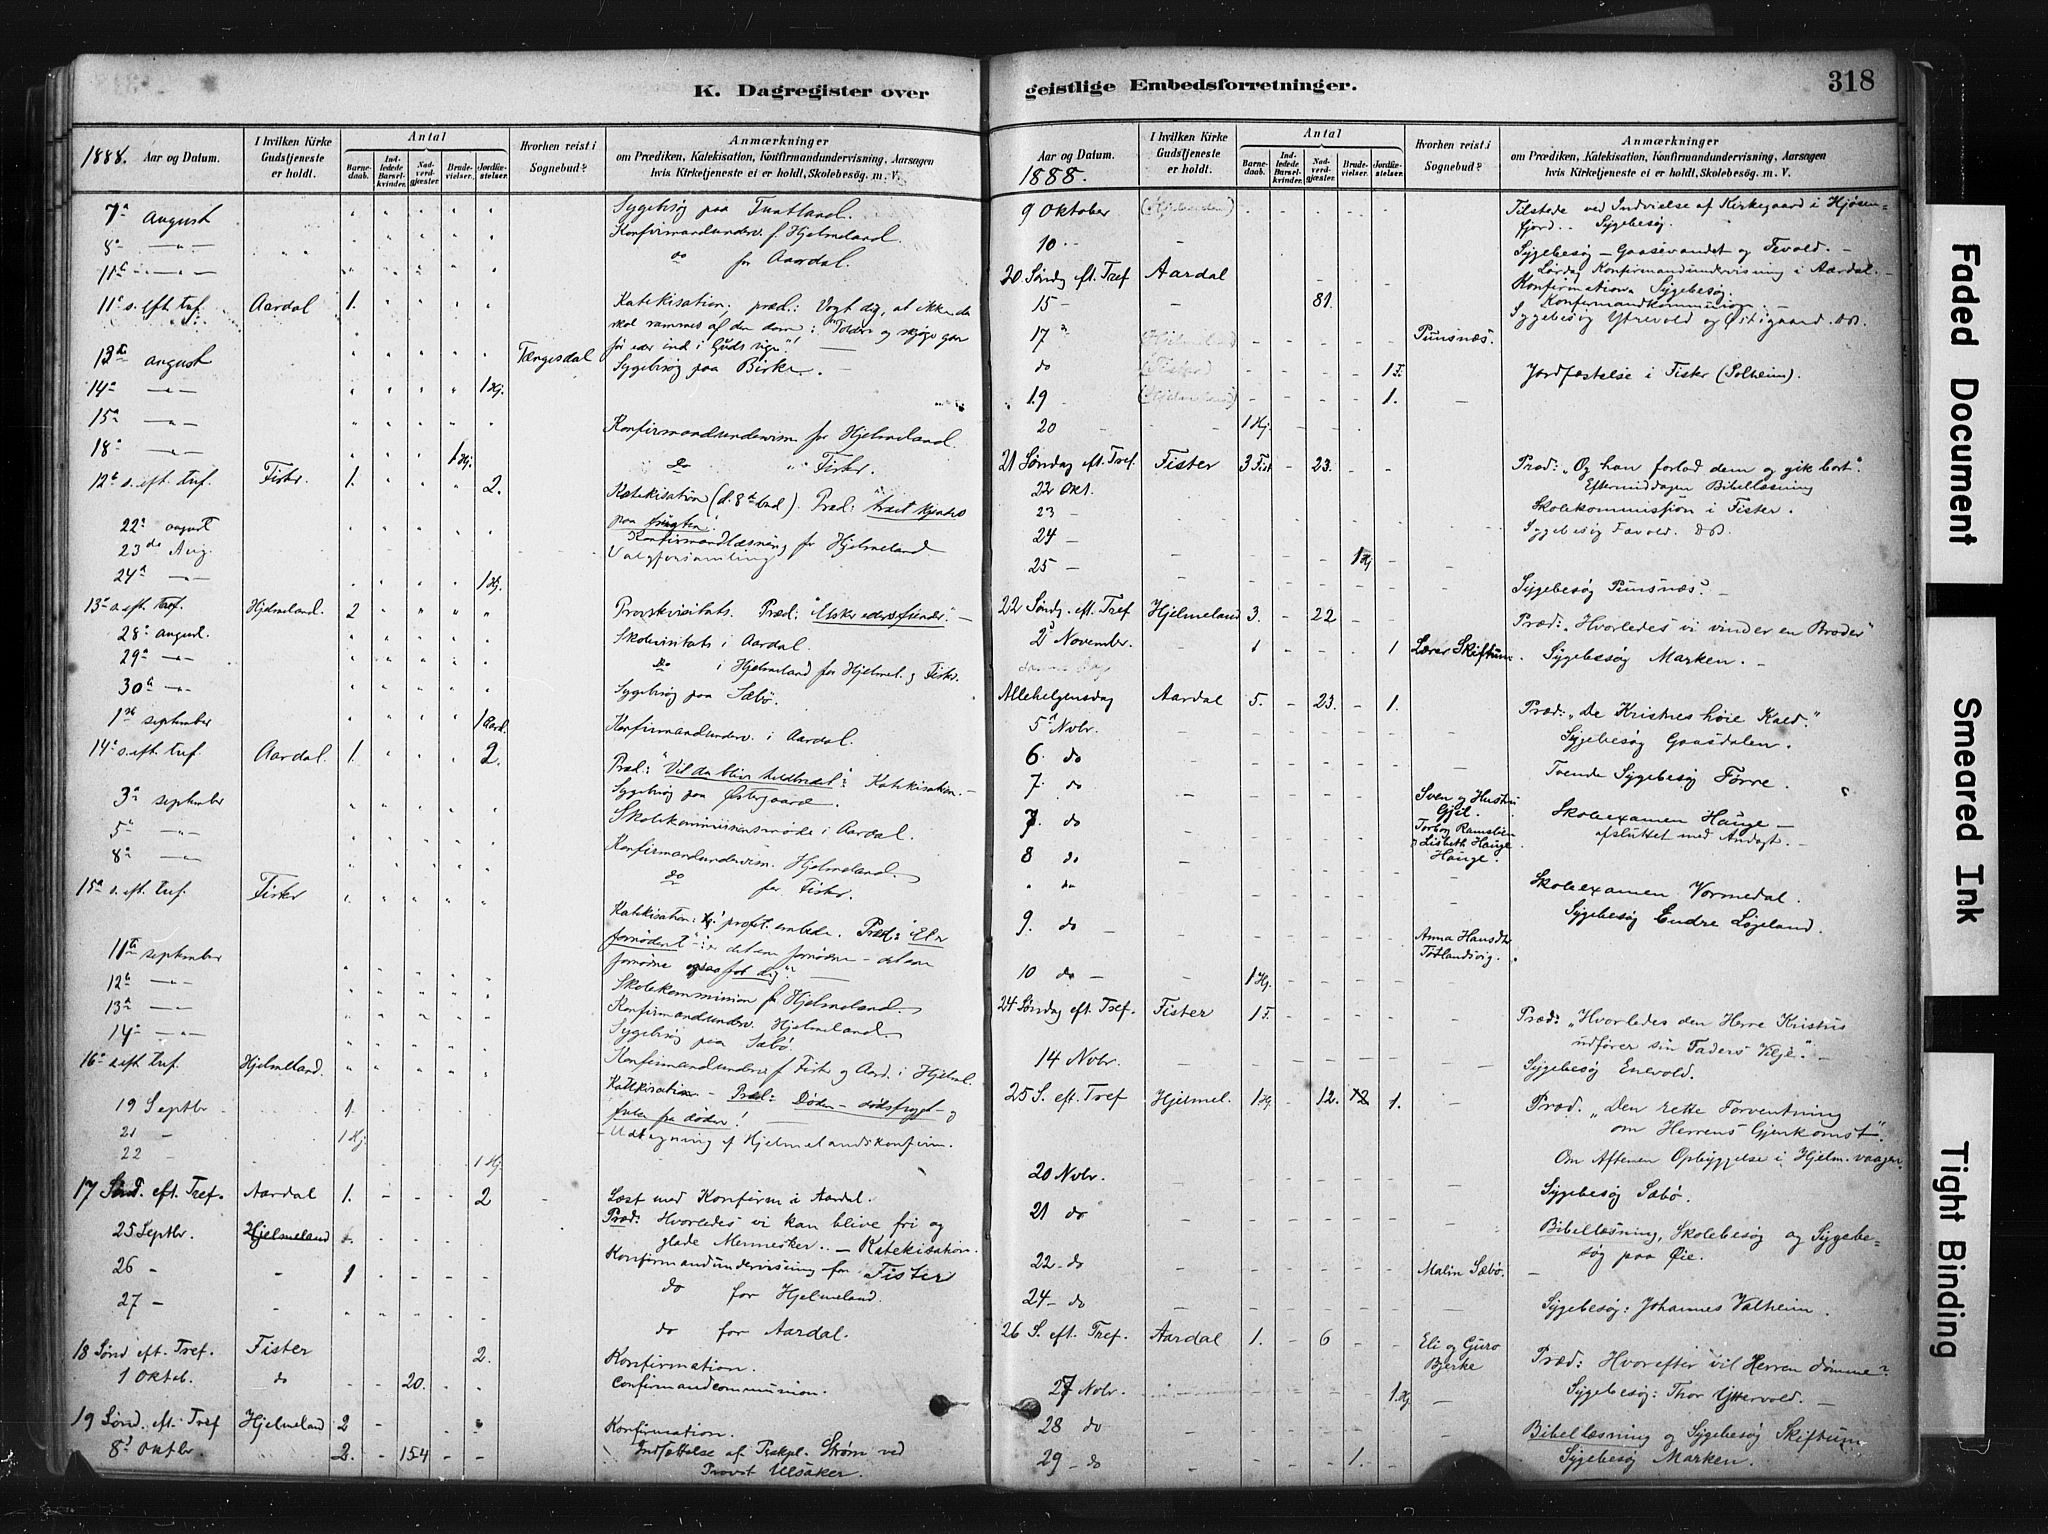 K. Dagregister over
geistlige Embedsforretninger.
318
1888. Aar og Datum.
I hvilken Kirke Gudstjeneste er holdt.
Antal
Barnedaab.
Indledede Barselkvinder.
Nadverdgjæster.
Brudevielser.
Jordfæstelser.
Hvorhen reist i Sognebud?
Anmærkninger
om Prædiken, Katekisation, Konfirmandundervisning, Aarsagen
hvis Kirketjeneste ei er holdt, Skolebesøg. m. V.
7de august Sygebesøg paa Tuntland.
8de Konfirmandunderv. f. Hjelmeland.
11te do for Aardal.
11te s. eft. tref. Aardal 1. Katekisation; præd: Vogt dig, at ikke du
skal rammes af den dom: "Toldere og skjøger gaa
før eder ind i Guds rige"!
13de august Tængesdal Sygebesøg paa Birke.
14de 1 Hj.
15de Konfirmandunderv. for Hjelmeland.
18de 1 Hj. do Fister.
12te s. eft. tref. Fister. 1. 2. Katekisation (d. 8de bud). Præd: træet kjendes
paa frugten.
22de august Konfirmandlæsning for Hjelmeland
23de Aug. Valgforsamling
24de 1 Hj.
13de s. eft. tref. Hjelmeland. 2 Provstvisitats. Præd: "Elsker eders fiender".
28de august. Skolevisitats i Aardal.
29de do i Hjelmeland for Hjelmel. og Fister.
30te Sygebesøg paa Sæbø.
1ste september 1 Aard. Konfirmandunderv. i Aardal.
14de s. eft. tref. Aardal. 1. 2. Præd: "Vil du blive helbredet". Katekisation.
3die september Sygebesøg paa Østegaard.
5te Skolekommissionsmøde i Aardal.
8de Konfirmandunderv. Hjelmeland.
15de s. eft. tref. Fister do for Fister.
Katekisation: profet. embede. Præd: "Et er
fornødent":
11te september
12te Skolekommission for Hjelmeland.
13de Konfirmandunderv. Hjelmeland.
14de Sygebesøg paa Sæbø.
16de s. eft. tref. Hjelmeland. Konfirmandunderv. f. Fister og Aard. i Hjelmel.
Katekisation – Præd: Døden –
19 Septbr 1.
21 1 Hj. Udtegning af Hjelmelandskonfirm.
22 1 Hj.
17 Sønd. eft. Tref. Aardal 1. 2 Læst med Konfirm i Aardal.
25 Septbr. Hjelmeland Præd: Hvorledes vi kan blive fri og
glade Mennesker. – Katekisation.
26 1 Konfirmandundervisning for Fister
27 do for Hjelmeland.
do for Aardal.
18 Sønd eft. Tref. Fister 2. Konfirmation.
1 Oktob. do 20. Confirmandcommunion.
19 Sønd. eft. Tref Hjelmeland 2 Konfirmation.
8de Oktbr. 2. 154 Indsættelse af Preskpl. Strøm ved
Provst Ulsaker.
Aar og Datum.
1888.
I hvilken Kirke Gudstjeneste er holdt.
Antal
Barnedaab.
Indledede Barselkvinder.
Nadverdgjæster.
Brudevielser.
Jordfæstelser.
Hvorhen reist i Sognebud?
Anmærkninger
om Prædiken, Katekisation, Konfirmandundervisning, Aarsagen
hvis Kirketjeneste ei er holdt, Skolebesøg. m. V.
9 Oktober (Hjelmeland) Tilstede ved Indvielse af Kirkegaard i Hjøsen-
fjord. Sygebesøg.
10 Sygebesøg – Gaasevandet og Tevold.
Lørdag Konfirmandundervisning i Aardal.
20 Sønd. eft Tref Aardal Konfirmation. Sygebesøg.
15 81. Konfirmandkommunion.
Sygebesøg Ytrevold og Østigaard.
17 (Hjelmeland) Punsnæs.
do (Fister) 1 F. Jordfæstelse i Fister (Solheim).
19 (Hjelmeland) 1.
20 1 Hj.
21 Søndag eft. Tref. Fister 3 Fist 23. Præd: "Og han forlod dem og gik bort".
22 Okt. Eftermiddagen Bibellæsning
23 Skolekommission i Fister.
24 Sygebesøg Favold.
25 1 Hj
Sygebesøg Punsnæs.
22 Sønd. eft. Tref Hjelmeland 3. 22 Præd: "Hvorledes vi vinder en Broder"
2 November. 1 1 Lærer Skiftun. Sygebesøg Marken.
samme Dag
Allehelgensdag Aardal 5. 23. 1. Præd: "De Kristnes høie Kald."
5te Novbr. Sygebesøg Gaasdalen.
6 do Tvende Sygebesøg Førre.
7. do Sven og Hustru
Gjil. Skoleexamen Hauge –
7. do Torbor Ramslien afsluttet med Andagt.
8 do Lisbeth Hauge
Hauge.
" do Skoleexamen Vormedal.
9. do Sygebesøg Endre Løjeland.
Anna Hansdtr
Tøtlandsvig.
10 do 1 Hj.
24 Søndag eft. Tref. Fister 1 F. Præd: "Hvorledes den Herre Kristus
udfører sin Faders Vilje".
14 Novbr. Sygebesøg Enevold.
25 S. eft. Tref Hjelmel. 1 Hj. 12. 12 1. Præd. "Den rette Forventning
om Herrens Gjenkomst".
Om Aftenen Opbyggelse i Hjelm. vaagen.
20 Novbr. Sygebesøg Sæbø.
21 do Bibellæsning, Skolebesøg og Sygebe-
søg paa Øie.
22 do Malin Sæbø.
24 do Sygebesøg: Johannes Valheim.
26 S. eft. Tref. Aardal 1. 6 Eli og Guro
Bjerke Præd: Hvorefter vil Herren dømme?
27 Novbr. 1 Hj. Sygebesøg: Thor Yttervold.
28 do Bibellæsning og Sygebesøg Skiftun
29 do 1. Sygebesøg Marken.
Faded Document
Smeared Ink
Tight Binding